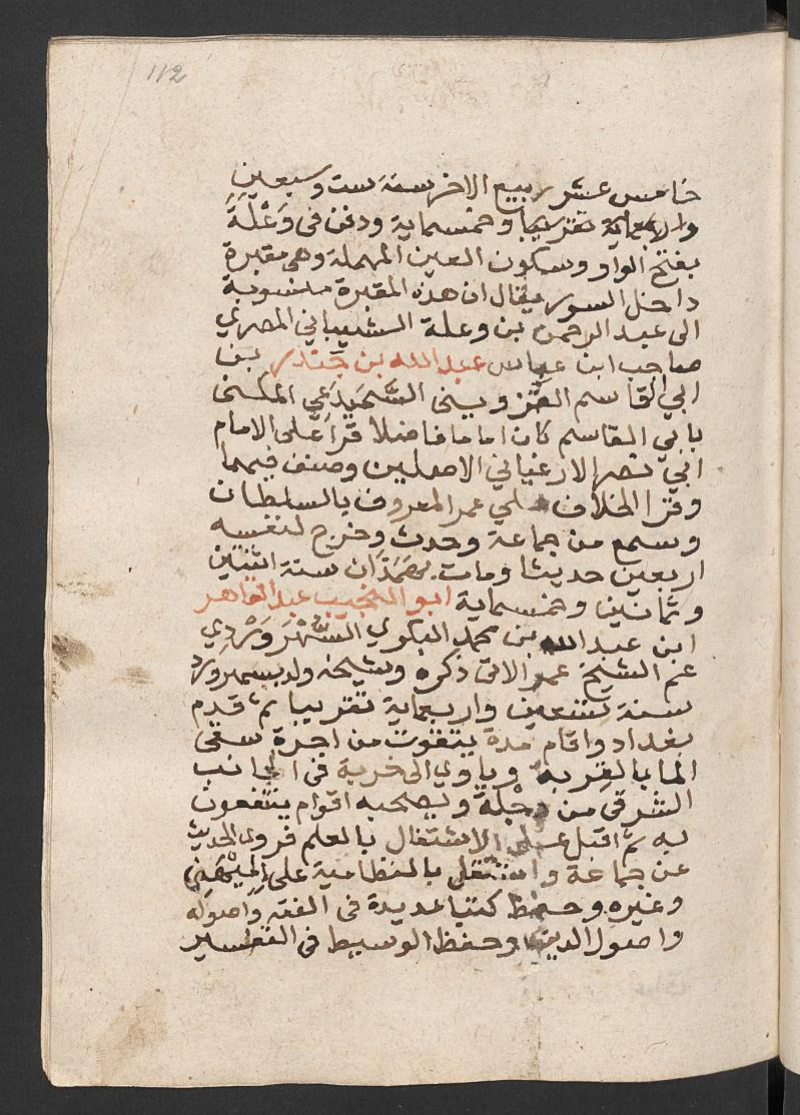 112
خامس عشر ربيع الاخر سنة ست وسبعين
واربعماية تقريبا وخمسماية ودفن في وَعْلَةَ
بفتح الواو وسكون العين المهملة وهي مقبرة
داخل السور يقال ان هذه المقبرة منسوبة
الى عبد الرحمن بن وعلة الشيباني المصري
صاحب ابن عباس عبد الله بن حَيْدَر بن
ابي القاسم القزويني السَّحَيْدَعِي المكنى
بابي القاسم كان اماما فاضلا قرا على الامام
ابي نصر الارغياني الاصلين وصنف فيهما
وقرا الخلاف علي عمر المعروف بالسلطان
وسمع من جماعة وحدث وخرج لنفسه
اربعين حديثا ومات بهَمَذَان سنة اثنين
وثمانين وخمسماية ابو النجيب عبد القاهر
ابن عبد الله بن محمد البكوي السُّهْرَوَرْدِي
عم الشيخ عمر الاتى ذكره وشيخه ولد بسهرورد
سنة تسعين واربعماية تقريبا ثم قدم
بغداد واقام مدة يتقوت من اجرة سقى
الما بالقربه وياوي الى خربة فى الجانب
الشرقى من دِجْلَة ويصحبه اقوام ينتفعون
به ثم اقبل على الاشتغال بالعلم فروى الحديث
عن جماعة واشتغل بالنظامية على المِيْهَنِي
وغيره وحفظ كتبا عديدة فى الفقه واصوله
واصول الدين وحفظ الوسيط فى التفسير